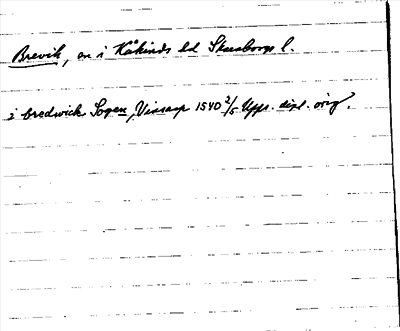 Brevik, sn i Kåkinds hd Skaraborgs l.
i bredwick Sogen, Vinsarp 1540 2/5 Upps. dipl. orig.